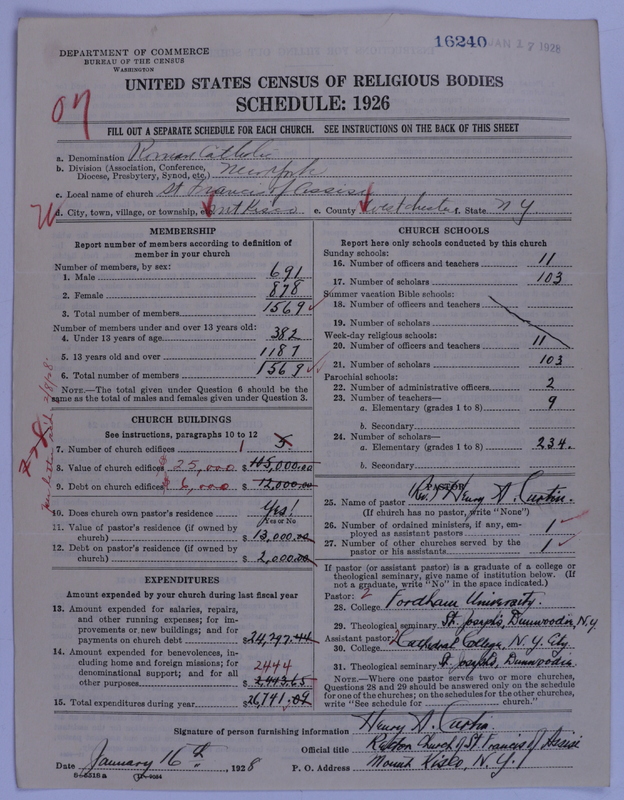 16240 JAN 17 1928
DEPARTMENT OF COMMERCE
BUREAU OF THE CENSUS
WASHINGTON
UNITED STATES CENSUS OF RELIGIOUS BODIES
SCHEDULE: 1926
FILL OUT A SEPARATE SCHEDULE FOR EACH CHURCH. SEE INSTRUCTIONS ON THE BACK OF THIS SHEET
a. Denomination Roman Catholic
b. Division (Association, Conference, Diocese, Presbytery, Synod, etc.) New York
c. Local name of church St Francis of Assisi
d. City, town, village, or township, Mt Kisco e. County Westchester f. State N Y
MEMBERSHIP
Report number of members according to definition of member in your church
Number of members, by sex:
1. Male 691
2. Female 878
3. Total number of members 1569
Number of members under and over 13 years old:
4. Under 13 years of age 382
5. 13 years old and over 1187
6. Total number of members 1569
NOTE.—The total given under Question 6 should be the same as the total of males and females given under Question 3.
CHURCH BUILDINGS
See instructions, paragraphs 10 to 12
7. Number of church edifices 1 3.
8. Value of church edifices $25,000 105,000.00
9. Debt on church edifices $6,000 12,000.00
10. Does church own pastor's residence? Yes!
Yes or No
11. Value of pastor's residence (if owned by church) $ 13,000.00
12. Debt on pastor's residence (if owned by church) $ 2,000.00
EXPENDITURES
Amount expended by your church during last fiscal year
13. Amount expended for salaries, repairs, and other running expenses; for improvements or new buildings; and for payments on church debt $ 24,297.44
14. Amount expended for benevolences, including home and foreign missions; for denominational support; and for all other purposes 2444 $ 2,443.65
15. Total expenditures during year $ 26,741.09
CHURCH SCHOOLS
Report here only schools conducted by this church
Sunday schools:
16. Number of officers and teachers 11
17. Number of scholars 103
Summer vacation Bible schools:
18. Number of officers and teachers
19. Number of scholars
Week-day religious schools:
20. Number of officers and teachers 11
21. Number of scholars 103
Parochial schools:
22. Number of administrative officers 2
23. Number of teachers—
a. Elementary (grades 1 to 8) 9
b. Secondary
24. Number of scholars—
a. Elementary (grades 1 to 8) 234.
b. Secondary
PASTOR
25. Name of pastor (Rev.) Henry A. Curtin.
(If church has no pastor, write "None")
26. Number of ordained ministers, if any, employed as assistant pastors 1
27. Number of other churches served by the pastor or his assistants 1
If pastor (or assistant pastor) is a graduate of a college or theological seminary, give name of institution below. (If not a graduate, write "No" in the space indicated.)
Pastor:
28. College Fordham University.
29. Theological seminary St. Joseph's, Dunwoodie, N.Y.
Assistant pastor:
30. College Cathedral College, N.Y. City
31. Theological seminary St. Joseph's, Dunwoodie
NOTE.—Where one pastor serves two or more churches, Questions 28 and 29 should be answered only on the schedule for one of the churches; on the schedules for the other churches, write "See schedule for church."
Signature of person furnishing information Henry A. Curtin.
Official title Rector Church of St Francis of Assisi
Date January 16th, 1928 P. O. Address Mount Kisco, N.Y.